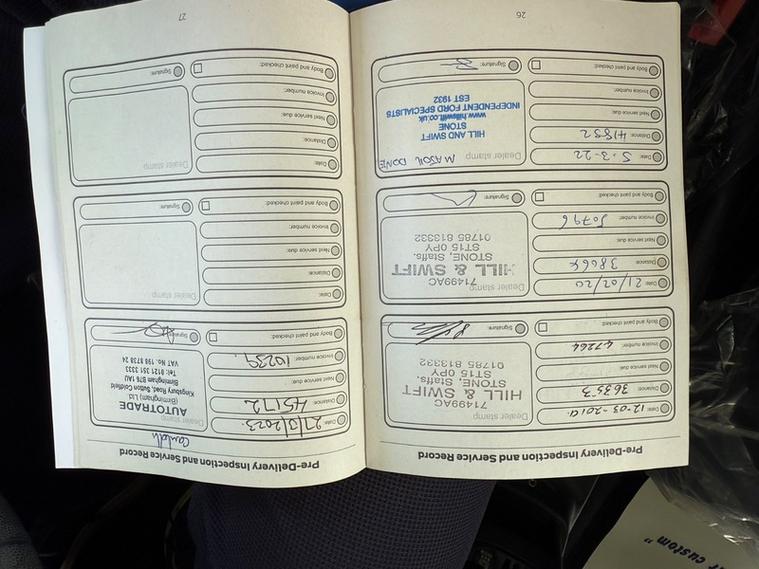 Pre-Delivery Inspection and Service Record
Date: 12-03-2019
Distance: 36353
Next service due:
Invoice number: 47264
Body and paint checked:
Dealer stamp
71499AC
HILL & SWIFT
STONE, Staffs.
ST15 0PY
01785 813332
Signature:
Date: 21/02/20
Distance: 38664
Next service due:
Invoice number: 50796
Body and paint checked:
Dealer stamp
71499AC
HILL & SWIFT
STONE, Staffs.
ST15 0PY
01785 813332
Signature:
Date: 5-3-22
Distance: 41852
Next service due:
Invoice number:
Body and paint checked:
Dealer stamp
MAJOR DONE
HILL AND SWIFT
STONE
www.hillswift.co.uk
INDEPENDENT FORD SPECIALISTS
EST 1932
Signature:
26
Pre-Delivery Inspection and Service Record
Date: 27/3/2023.
Distance: 45172
Next service due:
Invoice number: 10239.
Body and paint checked:
Dealer stamp
AUTOTRADE
(Birmingham) Ltd
Kingsbury Road, Sutton Coldfield
Birmingham B76 1AU
Tel: 0121 351 3333
VAT No. 198 8738 24
Signature:
Date:
Distance:
Next service due:
Invoice number:
Body and paint checked:
Dealer stamp
Signature:
Date:
Distance:
Next service due:
Invoice number:
Body and paint checked:
Dealer stamp
Signature:
27
custom"